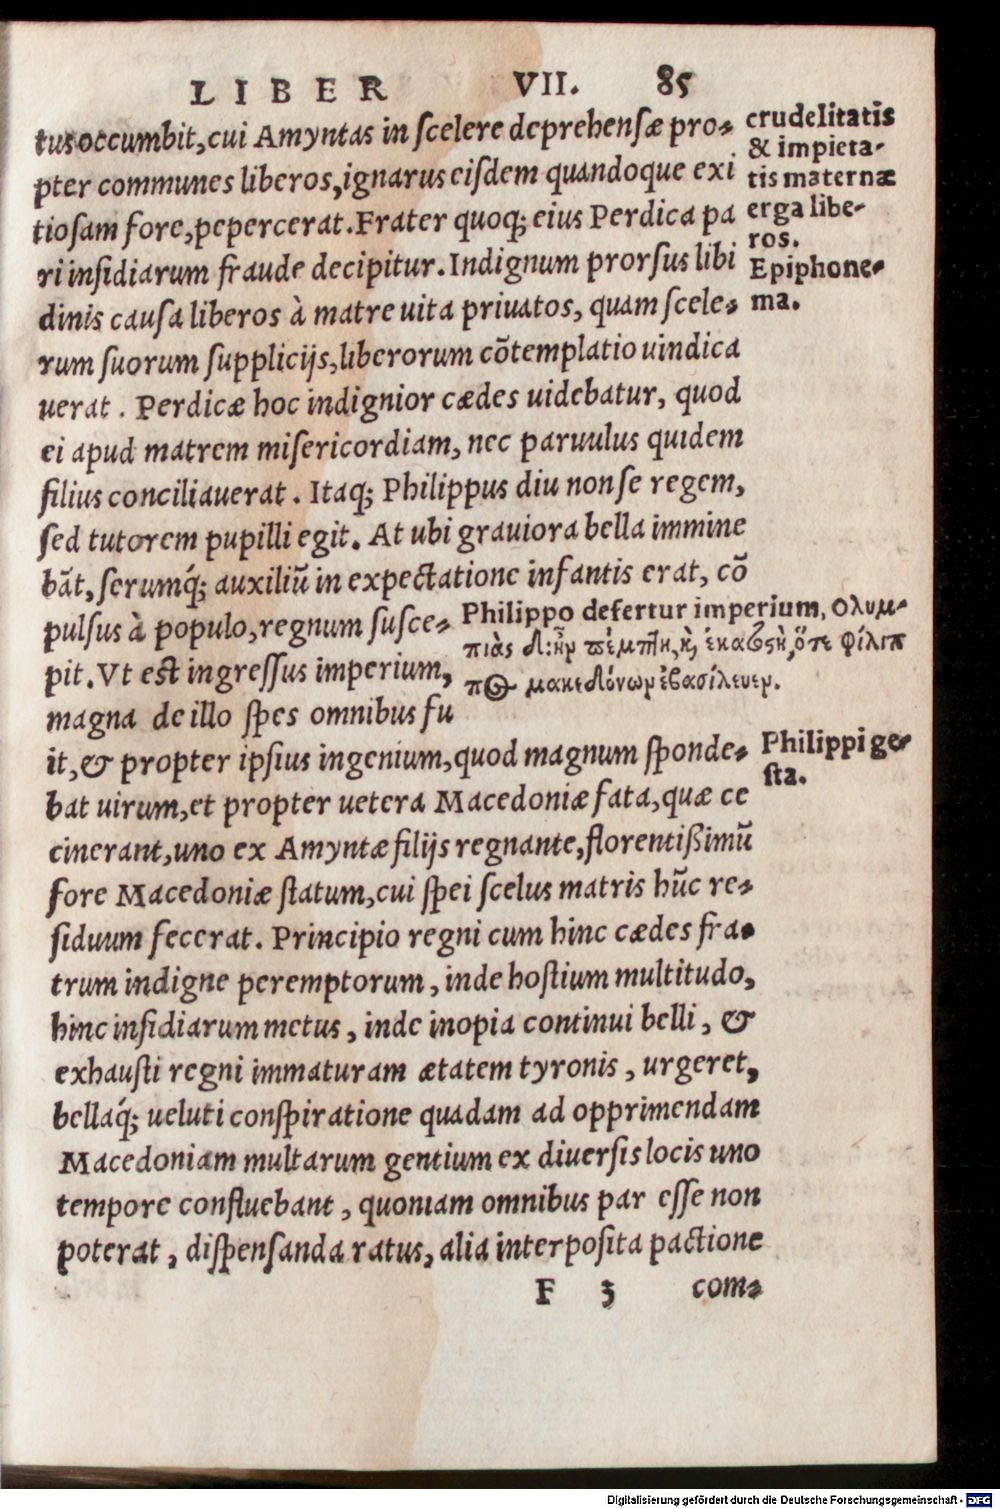 LIBER VII. 85
tus occumbit, cui Amyntas in scelere deprehensæ pro-
pter communes liberos, ignarus eisdem quandoque exi
tiosam fore, pepercerat. Frater quoq; eius Perdica pa
ri insidiarum fraude decipitur. Indignum prorsus libi
dinis causa liberos à matre uita priuatos, quam scele-
rum suorum supplicijs, liberorum cōtemplatio uindica
uerat. Perdicæ hoc indignior cædes uidebatur, quod
ei apud matrem misericordiam, nec paruulus quidem
filius conciliauerat. Itaq; Philippus diu non se regem,
sed tutorem pupilli egit. At ubi grauiora bella immine
bāt, serumq́; auxiliū in expectatione infantis erat, cō
pulsus à populo, regnum susce-
pit. Vt est ingressus imperium,
magna de illo spes omnibus fu
it, & propter ipsius ingenium, quod magnum sponde-
bat uirum, et propter uetera Macedoniæ fata, quæ ce
cinerant, uno ex Amyntæ filijs regnante, florentißimū
fore Macedoniæ statum, cui spei scelus matris hūc re-
siduum fecerat. Principio regni cum hinc cædes fra-
trum indigne peremptorum, inde hostium multitudo,
hinc insidiarum metus, inde inopia continui belli, &
exhausti regni immaturam ætatem tyronis, urgeret,
bellaq́; ueluti conspiratione quadam ad opprimendam
Macedoniam multarum gentium ex diuersis locis uno
tempore confluebant, quoniam omnibus par esse non
poterat, dispensanda ratus, alia interposita pactione
F 3 com-
crudelitatis
& impieta-
tis maternæ
erga libe-
ros.
Epiphone-
ma.
Philippo defertur imperium, Ολυμ-
πιὰς δ' ἦν πέμπτη κὴ ἑκατοςὴ, ὅτε φίλιπ
πος μακεδόνων ἐβασίλευεν.
Philippi ge-
sta.
Digitalisierung gefördert durch die Deutsche Forschungsgemeinschaft - DFG